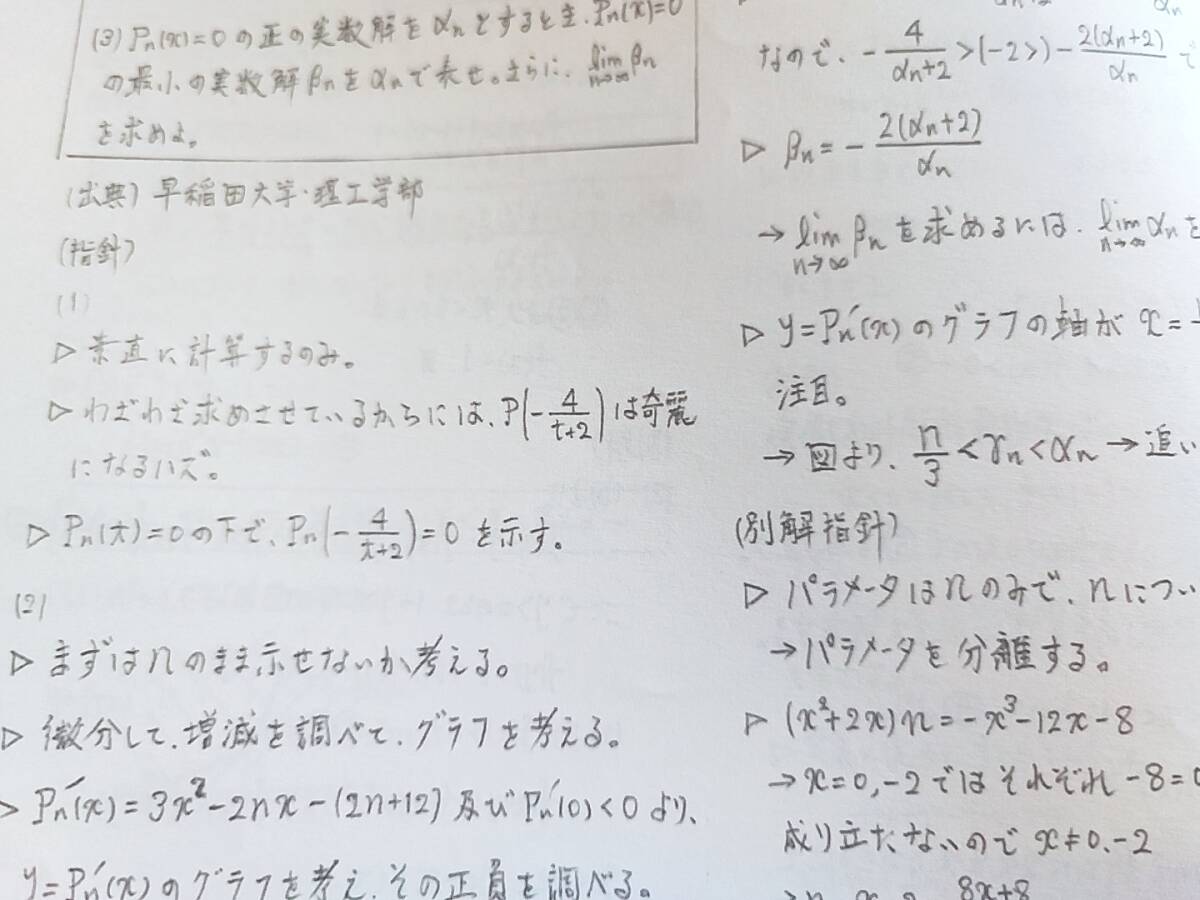 (3) Pn(x)=0の正の実数解をαnとするとき、Pn(x)=0
の最小の実数解βnをαnで表せ。さらに、lim n→∞ βn
を求めよ。
(出典) 早稲田大学・理工学部
(指針)
(1)
▷ 素直に計算するのみ。
▷ わざわざ求めさせているからには、P(-4/(t+2))は奇麗
になるハズ。
▷ Pn(t)=0の下で、Pn(-4/(t+2))=0を示す。
(2)
▷ まずはnのまま示せないか考える。
▷ 微分して、増減を調べて、グラフを考える。
> Pn'(x)=3x²-2nx-(2n+12)及びPn'(0)<0より、
y=Pn'(x)のグラフを考え、その正負を調べる。
αn
なので、-4/(αn+2)>(-2>)-2(αn+2)/αn で
▷ βn=-2(αn+2)/αn
→ lim n→∞ βnを求めるには、lim n→∞ αnを
▷ y=Pn'(x)のグラフの軸がx=
注目。
→ 図より、n/3<γn<αn→追い
(別解指針)
▷ パラメータはnのみで、nについ
→パラメータを分離する。
▷ (x²+2x)n=-x³-12x-8
→x=0,-2ではそれぞれ-8=0
成り立たないのでx≠0,-2
8x+8